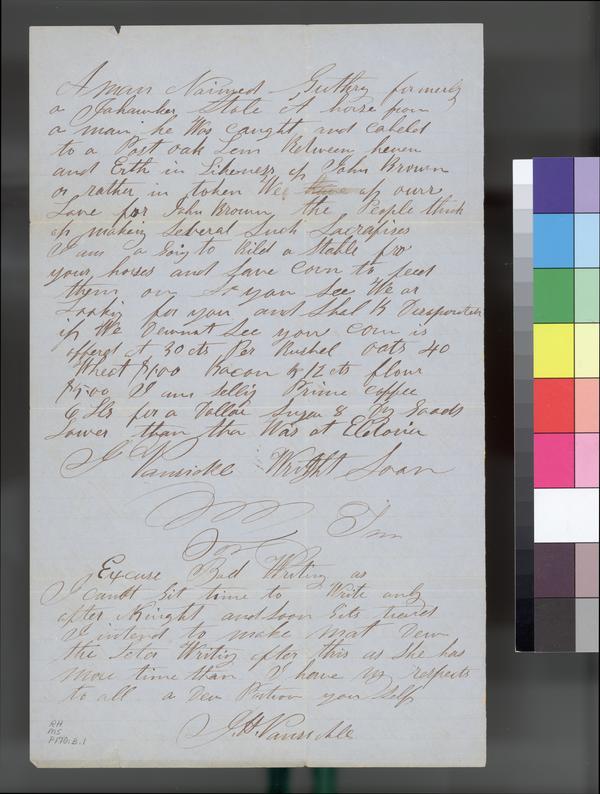 A man Naimed Guthry formerly
a Jahawker Stole A horse from
a man he Was caught and cabeld
to a Post oak Lem Between heven
and Erth in Likeness of John Brown
or rather in token We of ourr
Love for John Brown the People think
of making Several Such Sacrafises
I am a Going to Bild a Stable for
your horses and Save Corn to feed
them on So you See We ar
Looking for you and Shal B Disapointed
if We Dewnat See you Corn is
offered at 30 cts Per Bushel oats 40
Wheat $1.00 Bacon 12 cts flour
$5.00 I am Sellig Prime coffee
6 Lbs for a Dollar Sugar 8 Dry Goods
Lower than tha Was at
J Vansickle Wright Soon
Excuse Bad Writing as
I canot Git time to Write only
after Ninght and Soon Gits tiered
I intend to make Mat Dew
the Leter Writing after this as She has
more time than I have my respects
to all a Dew Portion your Self
J.H. Vansickle
RH
MS
P170:B.1